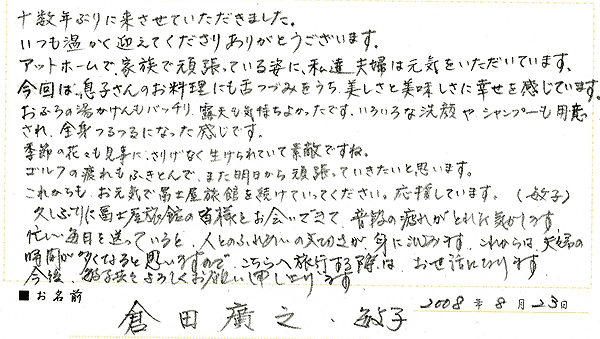 十数年ぶりに来させていただきました。
いつも温かく迎えてくださりありがとうございます。
アットホームで、家族で頑張っている姿に、私達夫婦は元気をいただいています。
今回は、息子さんのお料理にも舌つづみをうち、美しさと美味しさに幸せを感じています。
おふろの湯かげんもバッチリ、露天も気持ちよかったです。いろいろな洗顔やシャンプーも用意
され、全身つるつるになった感じです。
季節の花々も見事に、さりげなく生けられていて素敵ですね。
ゴルフの疲れもふきとんで、また明日から頑張っていきたいと思います。
これからも、お元気で冨士屋旅館を続けていってください。応援しています。（敏子）
久しぶりに冨士屋旅館の皆様とお会いできて、普段の疲れがとれた気がします。
忙しい毎日を送っていると、人とのふれあいの大切さが身に沁みます。これからは、夫婦の
時間が多くなると思いますので、こちらへ旅行する際は、お世話になります。
今後、敏子共々よろしくお願い申し上げます
■お名前
2008年8月23日
倉田廣之・敏子